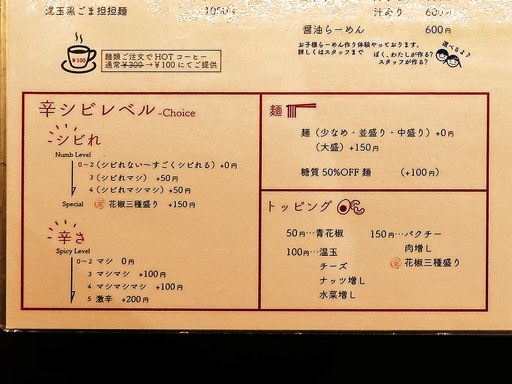 温玉黒ごま担担麺
醤油らーめん 600円
お子様らーめん作り体験やっております。
詳しくはスタッフまで
ぼく、わたしが作る?
スタッフが作る?
選べるよ♪
¥100
麺類ご注文でHOTコーヒー
通常¥300→¥100にてご提供
辛シビレベル-Choice
シビれ
Numb Level
0~2(シビれない~すごくシビれる)+0円
3(シビれマシ) +50円
4(シビれマシマシ)+50円
Special 花椒三種盛り +150円
辛さ
Spicy Level
0~2 マシ 0円
3 マシマシ +100円
4 マシマシマシ +100円
5 激辛 +200円
麺
麺(少なめ・並盛り・中盛り)+0円
(大盛)+150円
糖質50%OFF麺 (+100円)
トッピング
50円…青花椒
100円…温玉
チーズ
ナッツ増し
水菜増し
150円…パクチー
肉増し
花椒三種盛り